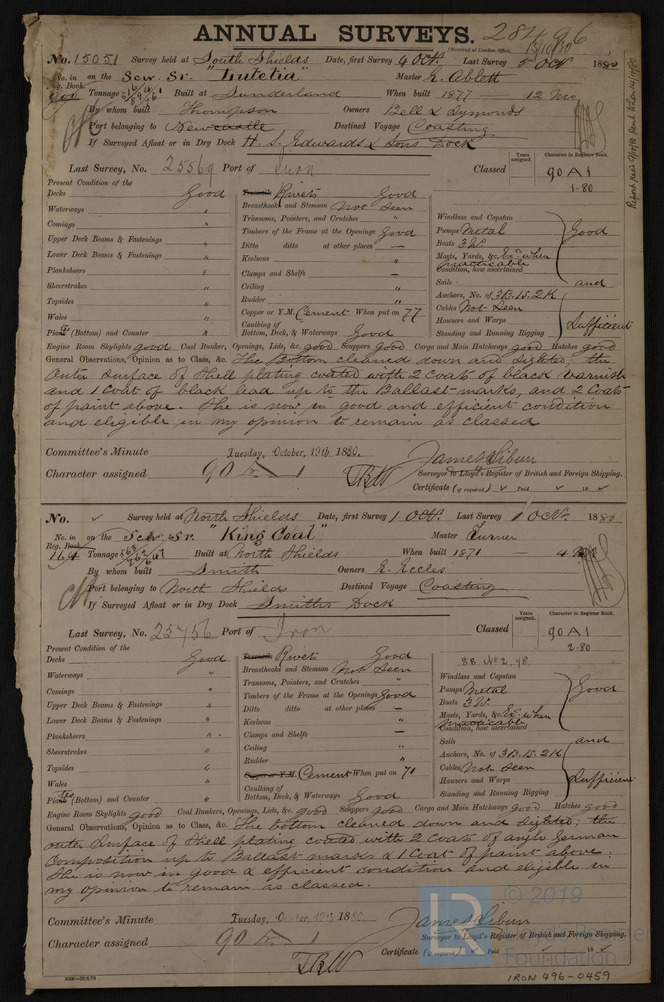 ANNUAL SURVEYS. 28496
Received at London Office, 15/10/80
No. 15051 Survey held at South Shields Date, first Survey 4 Oct. Last Survey 5 Oct 1880
No. in Reg. Book on the Scw. Sr. "Lutetia" Master E. Ablott
Tonnage Built at Sunderland When built 1877 12 Mo
By whom built Thompson Owners Bell & Symonds
Port belonging to Newcastle Destined Voyage Coasting
If Surveyed Afloat or in Dry Dock H. S. Edwards & Sons Dock
Last Survey, No. 25569 Port of Iron Classed Years assigned. Character in Register Book. 90 A1 1-80
Present Condition of the
Decks Good
Waterways "
Comings "
Upper Deck Beams & Fastenings "
Lower Deck Beams & Fastenings "
Planksheers "
Sheerstrakes "
Topsides "
Wales "
Plates (Bottom) and Counter "
Treenails Rivets Good
Breasthooks and Stemson Not Seen
Transoms, Pointers, and Crutches "
Timbers of the Frame at the Openings Good
Ditto ditto at other places —
Keelsons "
Clamps and Shelfs —
Ceiling "
Rudder "
Copper or Y.M. Cement When put on 77
Caulking of Bottom, Deck, & Waterways Good
Windlass and Capstan
Pumps Metal
Boats 3 W.
Masts, Yards, &c. Ex. when practicable
Condition, how ascertained
Sails
Anchors, No. of 3B.1S.2K
Cables Not Seen
Hawsers and Warps
Standing and Running Rigging
Good and Sufficient
Engine Room Skylights good Coal Bunker, Openings, Lids, &c. good Scuppers Good Cargo and Main Hatchways good Hatches good
General Observations, Opinion as to Class, &c. The Bottom cleaned down and sighted; the
Outer Surface of Shell plating coated with 2 Coats of black varnish
and 1 Coat of black lead up to the Ballast-marks, and 2 Coats
of paint above. She is now in good and efficient condition
and eligible in my opinion to remain as classed
Committee's Minute Tuesday, October, 19th 1880.
Character assigned 90 A 1
James Sibun
Surveyor to Lloyd's Register of British and Foreign Shipping.
Certificate (if required) Paid 18
No. Survey held at North Shields Date, first Survey 1 Oct. Last Survey 1 Oct. 1880
No. in Reg. Book on the Scw. Sr. "King Coal" Master Turner
Tonnage Built at North Shields When built 1871 4 Mo
By whom built Smith Owners R. Eccles
Port belonging to North Shields Destined Voyage Coasting
If Surveyed Afloat or in Dry Dock Smiths Dock
Last Survey, No. 25756 Port of Iron Classed Years assigned. Character in Register Book. 90 A1 2-80
SS No 2. 78
Present Condition of the
Decks Good
Waterways "
Comings "
Upper Deck Beams & Fastenings "
Lower Deck Beams & Fastenings "
Planksheers "
Sheerstrakes "
Topsides "
Wales "
Plates (Bottom) and Counter "
Treenails Rivets Good
Breasthooks and Stemson Not Seen
Transoms, Pointers, and Crutches "
Timbers of the Frame at the Openings Good
Ditto ditto at other places —
Keelsons "
Clamps and Shelfs —
Ceiling "
Rudder "
Copper or Y.M. Cement When put on 71
Caulking of Bottom, Deck, & Waterways Good
Windlass and Capstan
Pumps Metal
Boats 3 W.
Masts, Yards, &c. Ex. when practicable
Condition, how ascertained
Sails
Anchors, No. of 3B.1S.2K
Cables Not Seen
Hawsers and Warps
Standing and Running Rigging
Good and Sufficient
Engine Room Skylights good Coal Bunkers, Openings, Lids, &c. good Scuppers Good Cargo and Main Hatchways good Hatches good
General Observations, Opinion as to Class, &c. The bottom cleaned down and sighted; the
outer Surface of Shell plating coated with 2 Coats of anglo German
Composition up to Ballast marks & 1 Coat of paint above:
She is now in good & efficient condition and eligible in
my opinion to remain as classed.
Committee's Minute Tuesday, October, 19th 1880
Character assigned 90 A 1
James Sibun
Surveyor to Lloyd's Register of British and Foreign Shipping.
Certificate (if required) Paid 18
© 2019
Foundation
IRON 496-0459